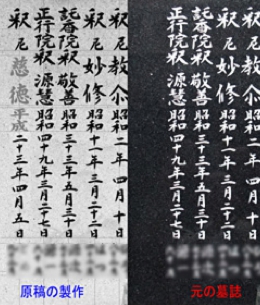 釈尼教尒 昭和二年四月十日
釈尼妙修 昭和十一年三月二十二日
香院釈敬善 昭和三十三年五月三十日
正行院釈源慧 昭和四十九年三月二十七日
釈尼慈徳 平成二十三年四月五日
原稿の製作
釈尼教 昭和二年四月十日
釈尼妙修 昭和十一年三月二十二日
香院釈敬善 昭和三十三年五月三十日
正行院釈源慧 昭和四十九年三月二十七日
元の墓誌